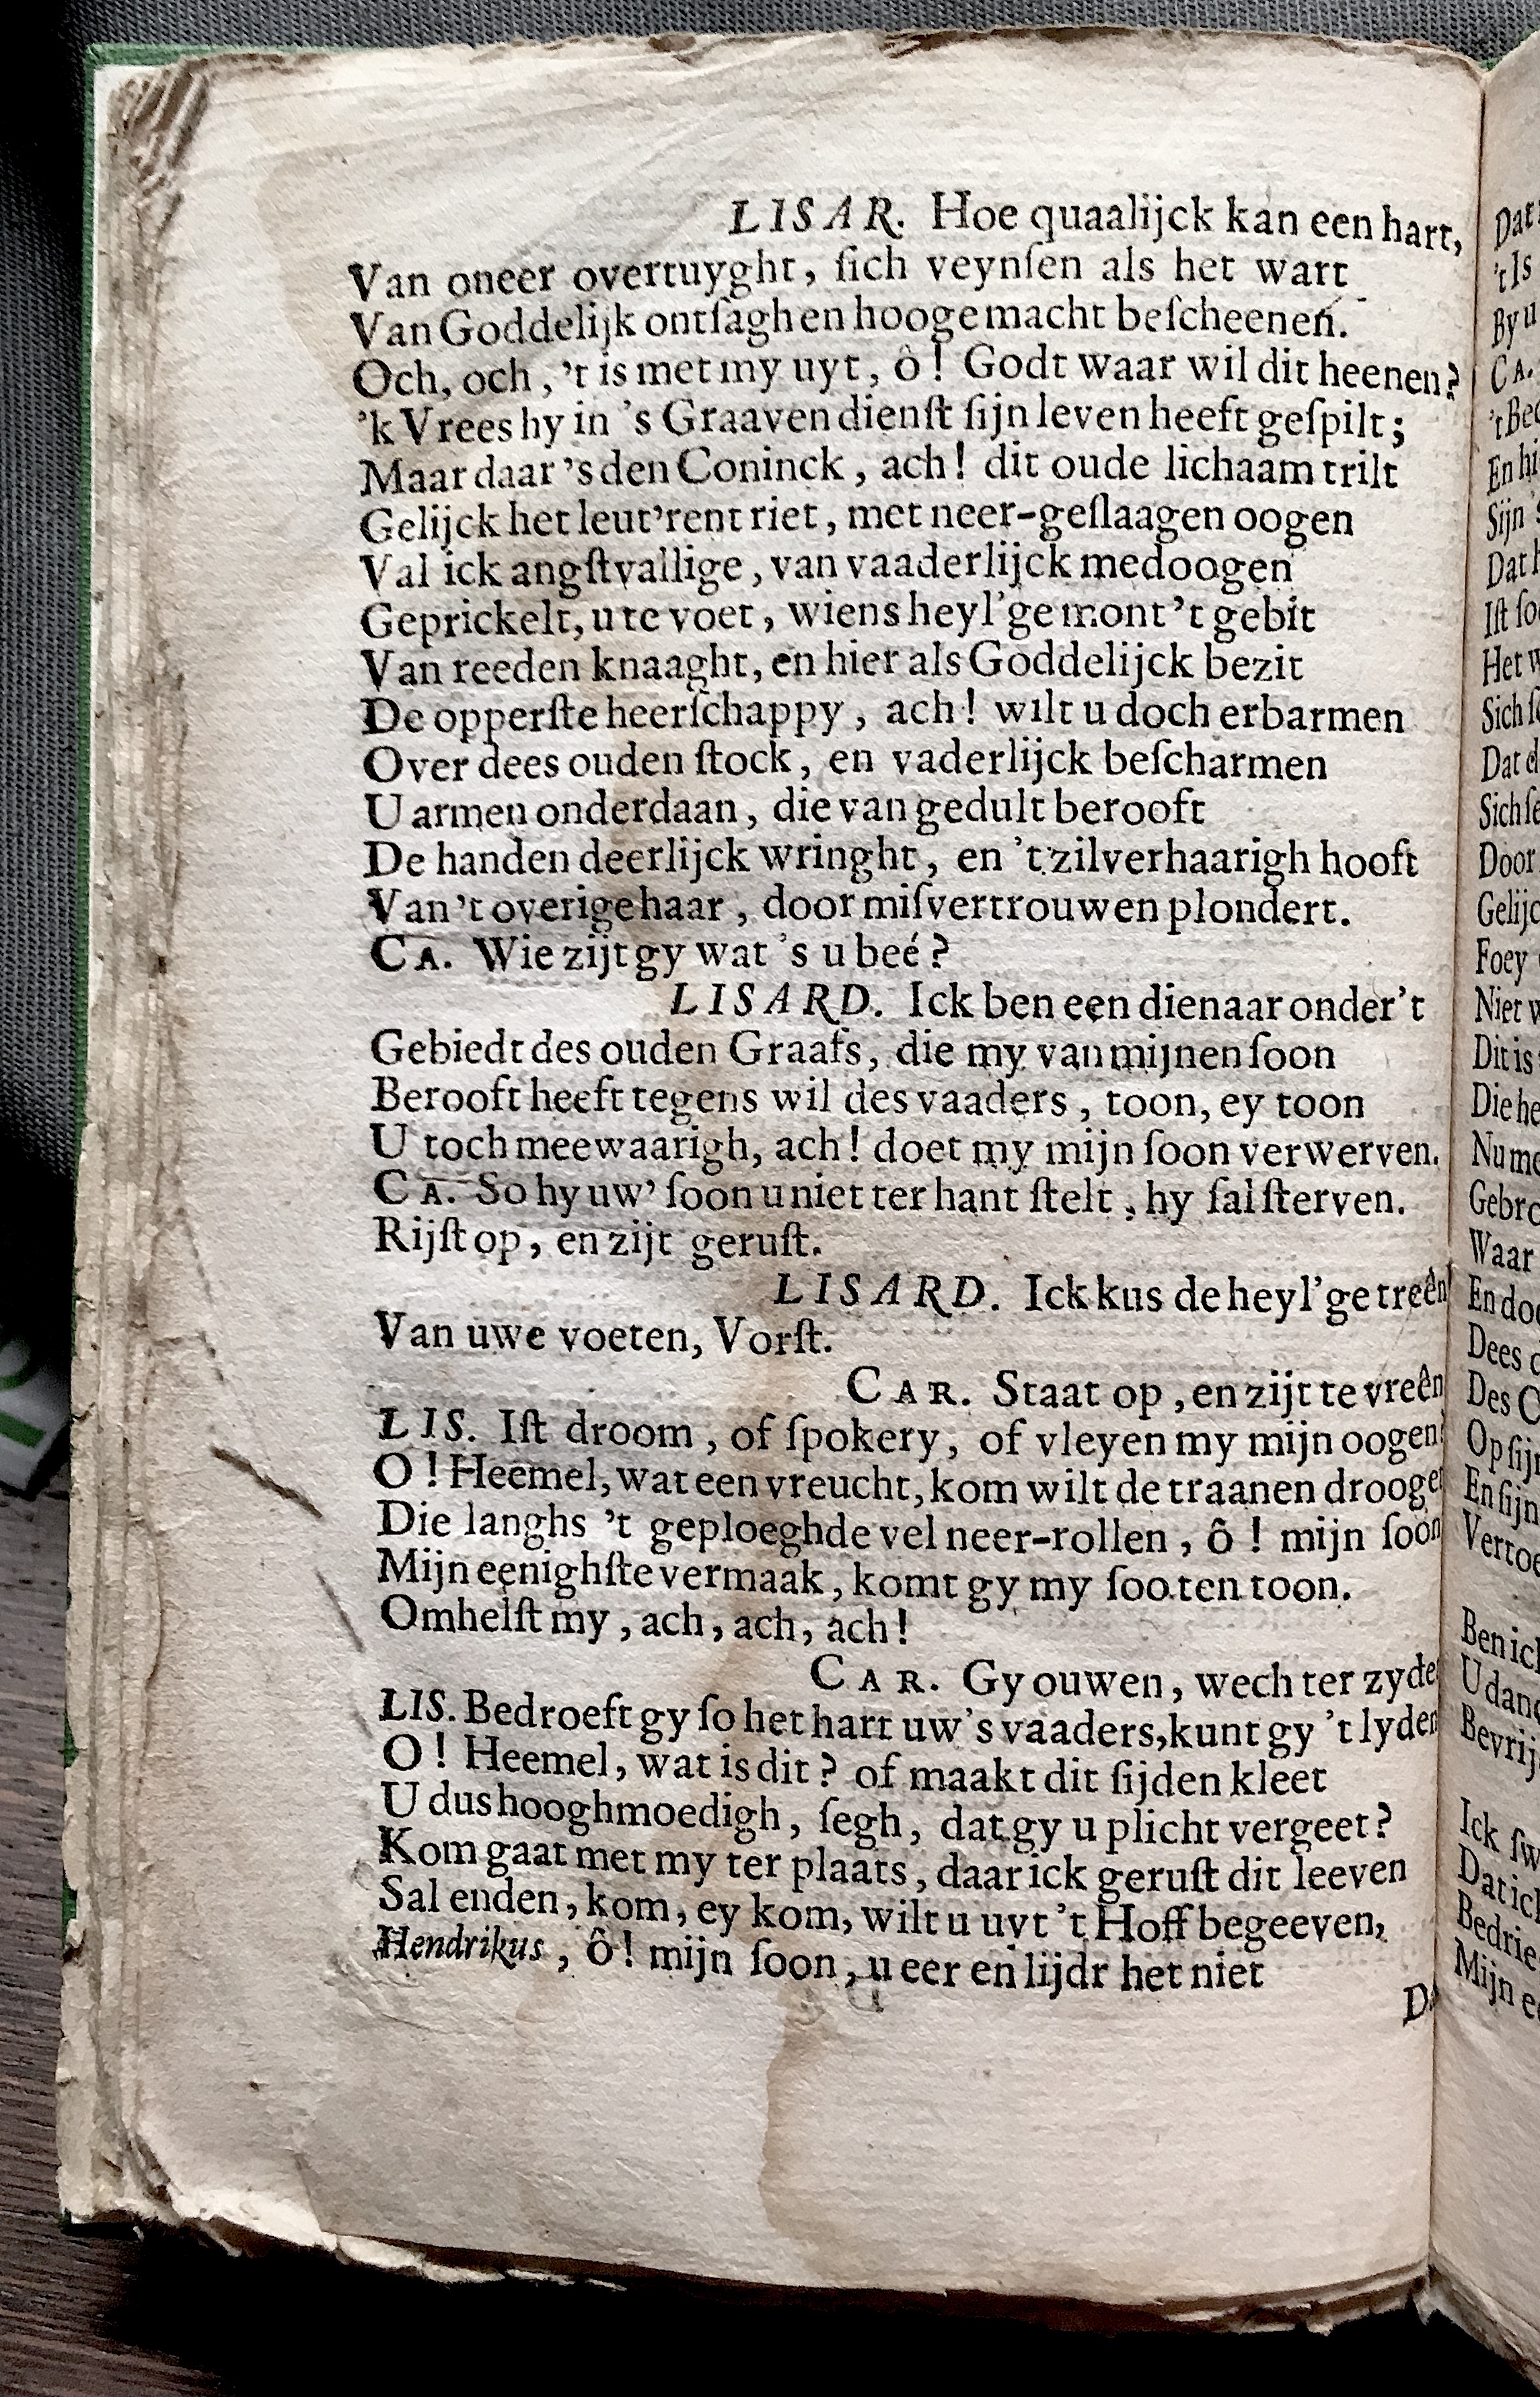 LISAR. Hoe quaalijck kan een hart,
Van oneer overtuyght, ſich veynſen als het wart
Van Goddelijk ontſagh en hooge macht beſcheenen.
Och, och, 't is met my uyt, ô! Godt waar wil dit heenen?
'k Vrees hy in 's Graaven dienſt ſijn leven heeft geſpilt;
Maar daar 's den Coninck, ach! dit oude lichaam trilt
Gelijck het leut'rent riet, met neer-geſlaagen oogen
Val ick angſtvallige, van vaaderlijck medoogen
Geprickelt, u te voet, wiens heyl'ge mont 't gebit
Van reeden knaaght, en hier als Goddelijck bezit
De opperſte heerſchappy, ach! wilt u doch erbarmen
Over dees ouden ſtock, en vaderlijck beſcharmen
U armen onderdaan, die van gedult berooft
De handen deerlijck wringht, en 't zilverhaarigh hooft
Van 't overige haar, door miſvertrouwen plondert.
CA. Wie zijt gy wat 's u beé?
LISARD. Ick ben een dienaar onder 't
Gebiedt des ouden Graafs, die my van mijnen ſoon
Berooft heeft tegens wil des vaaders, toon, ey toon
U toch meewaarigh, ach! doet my mijn ſoon verwerven.
CA. So hy uw' ſoon u niet ter hant ſtelt, hy ſal ſterven.
Rijſt op, en zijt geruſt.
LISARD. Ick kus de heyl'ge treên
Van uwe voeten, Vorſt.
CAR. Staat op, en zijt te vreên
LIS. Iſt droom, of ſpokery, of vleyen my mijn oogen?
O! Heemel, wat een vreucht, kom wilt de traanen drooge
Die langhs 't geploeghde vel neer-rollen, ô! mijn ſoon
Mijn eenighſte vermaak, komt gy my ſoo ten toon.
Omhelſt my, ach, ach, ach!
CAR. Gy ouwen, wech ter zyde
LIS. Bedroeft gy ſo het hart uw's vaaders, kunt gy 't lyden
O! Heemel, wat is dit? of maakt dit ſijden kleet
U dus hooghmoedigh, ſegh, dat gy u plicht vergeet?
Kom gaat met my ter plaats, daar ick geruſt dit leeven
Sal enden, kom, ey kom, wilt u uyt 't Hoff begeeven,
Hendrikus, ô! mijn ſoon, u eer en lijdt het niet
Dat
't Is
By u
CA.
't Bed
En hi
Sijn
Dat
Iſt ſo
Het w
Sich ſ
Dat
Sich ſe
Door
Gelijc
Foey
Niet
Dit is
Die he
Nu me
Gebro
Waar
En do
Dees
Des C
Op ſijn
En ſijn
Vertoe
Ben ick
U dan
Bevrij
Ick ſw
Dat ick
Bedrie
Mijn e